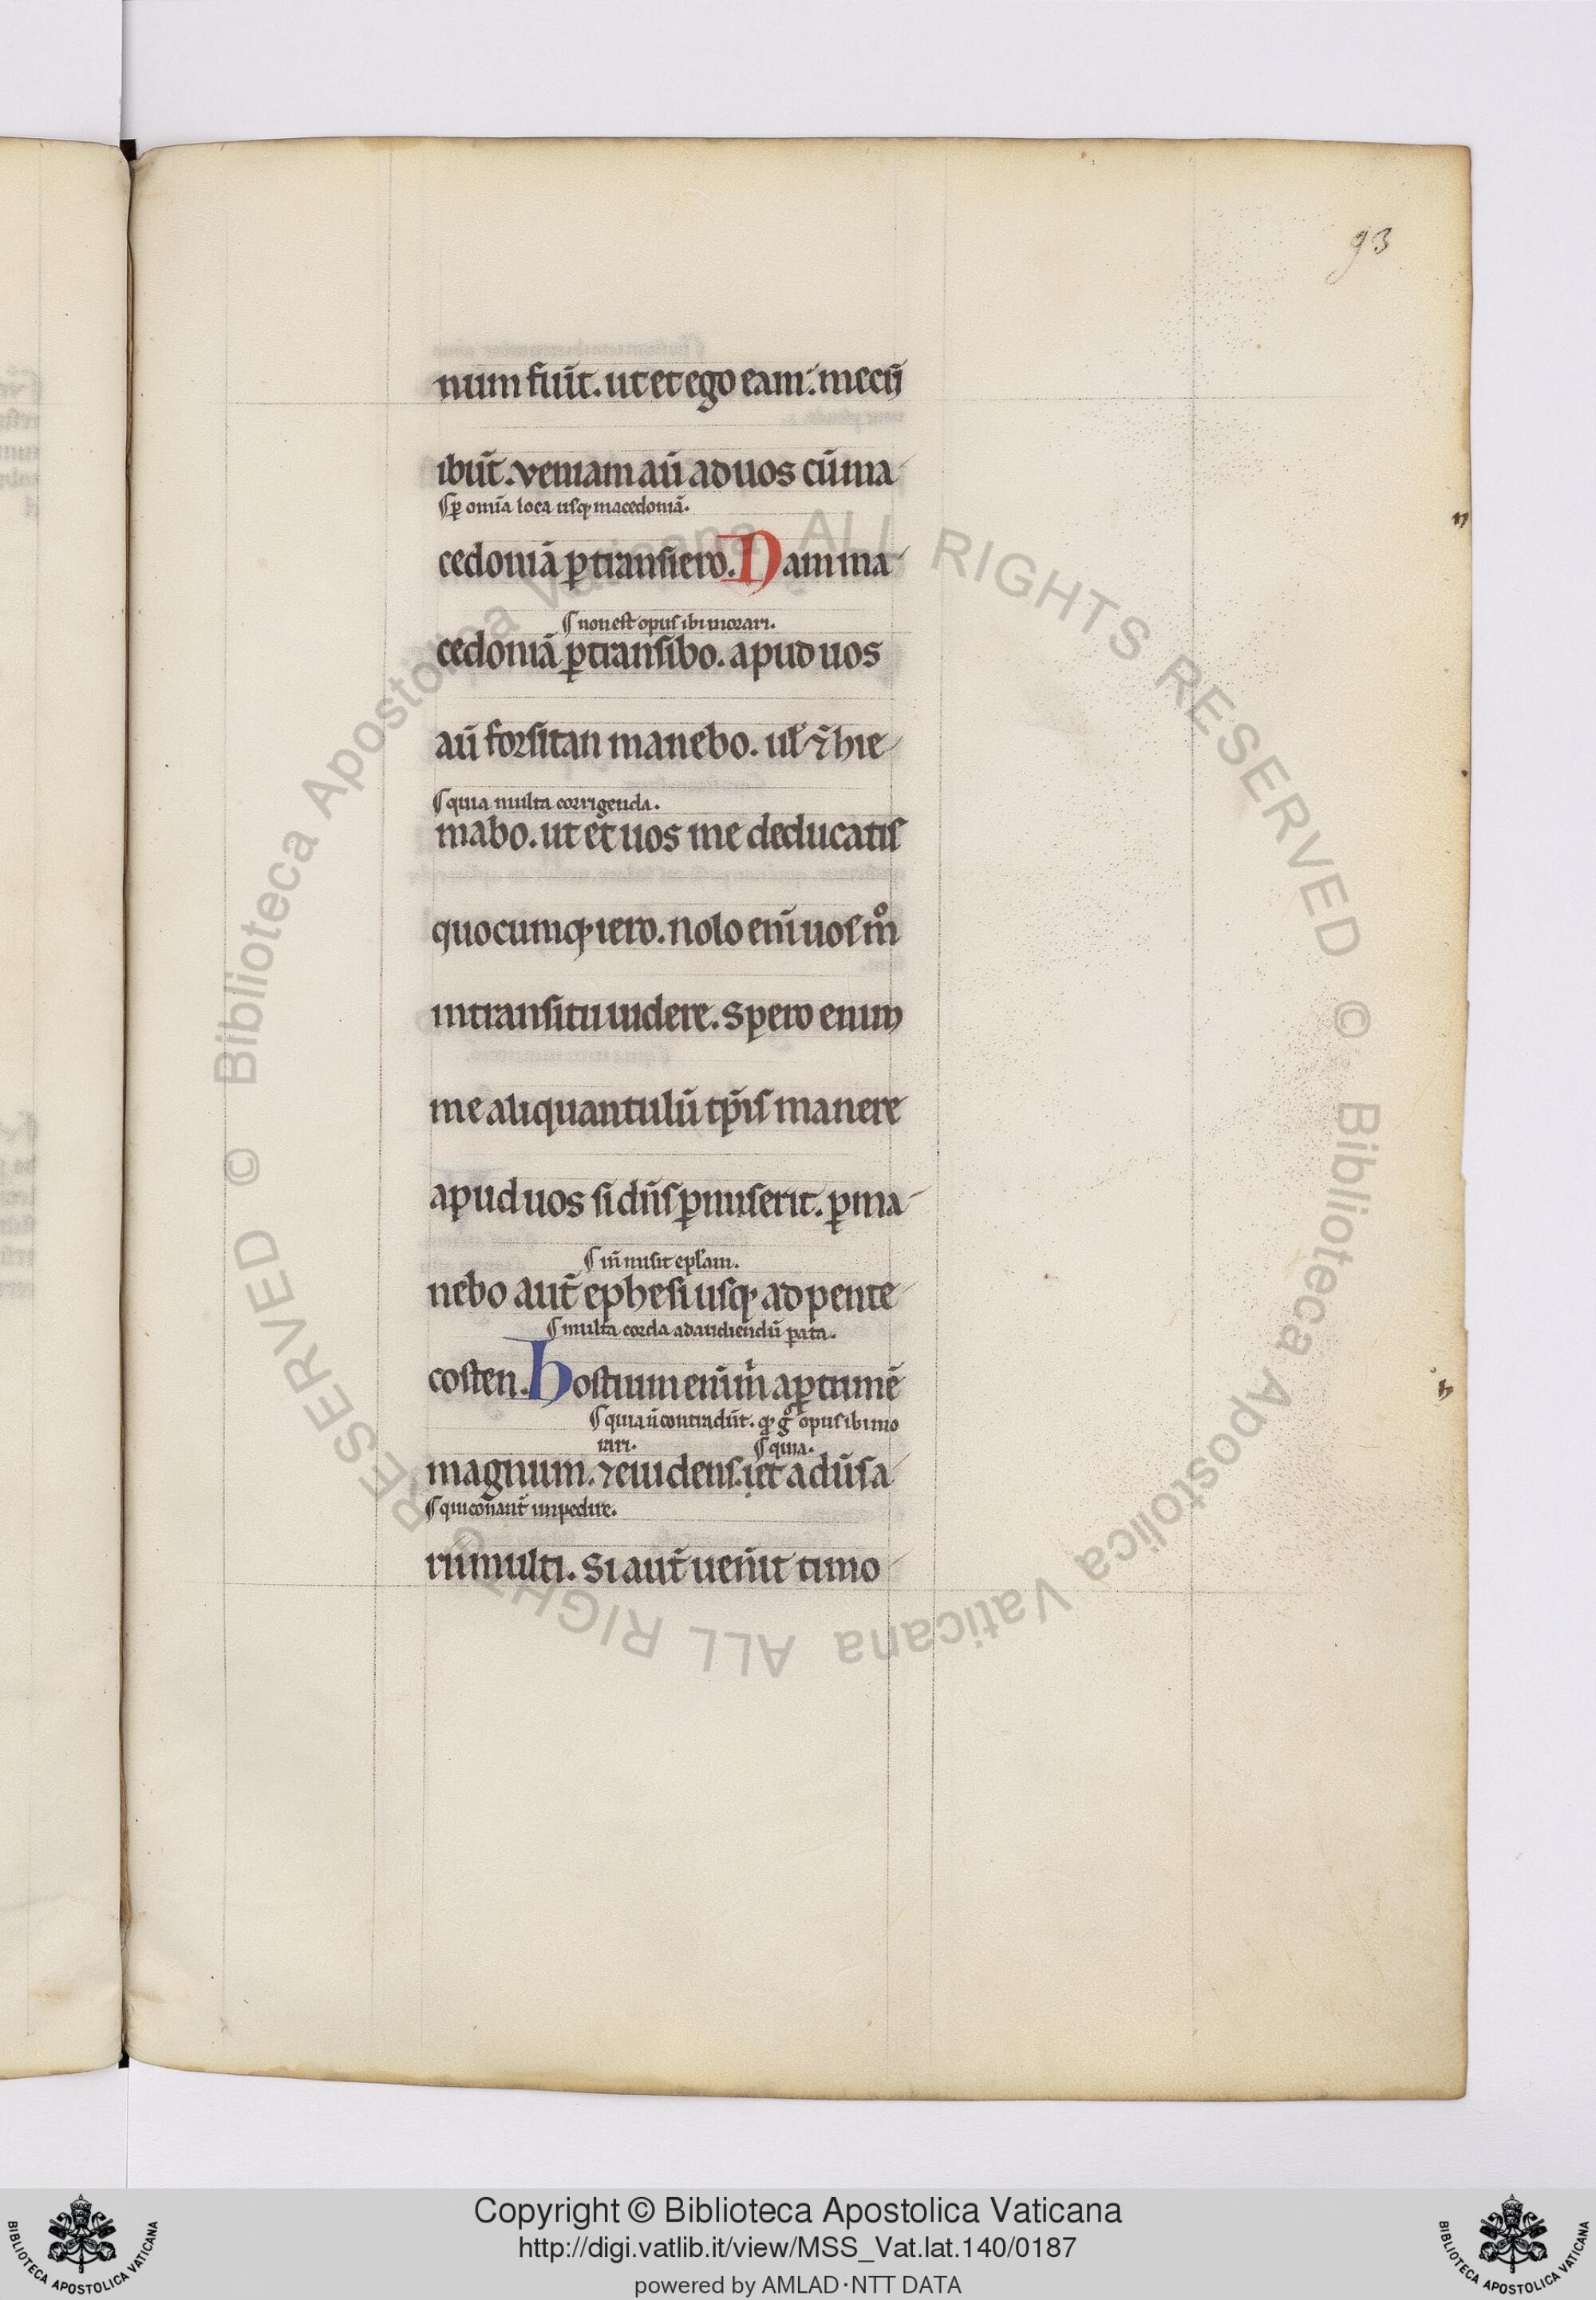 93
num fuīt. ut et ego eam. mecū
ibūt. veniam aū ad uos cū ma
¶ ꝑ omīa loca usqꝫ macedoniā.
cedoniā ꝑtransiero. Nam ma
¶ non est opus ibi morari.
cedoniā ꝑtransibo. apud uos
aū forsitan manebo. ul̓ ⁊̄ hie
¶ quia multa corrigenda.
mabo. ut et uos me deducatis
quocumqꝫ iero. nolo enī uos mͦ
in transitu uidere. Spero enim
me aliquantulū tp̄is manere
apud uos si dn̄s ꝑmiserit. ꝑma
¶ īn misit ep̄lam.
nebo aut̄ ephesi usqꝫ ad pente
¶ multa corda ad audiendū ꝑata.
costen. Hostium enim m̍ aꝑtum ē
¶ quia ū contradūt. qꝫ gͦ opus ibi mo
rari. ¶ quia.
magnum. ⁊ euidens. et aduersa
¶ qui conant̄ impedire.
rii multi. Si aut̄ uen̄it timo
ALL RIGHTS RESERVED © Biblioteca Apostolica Vaticana ALL RIGHTS RESERVED © Biblioteca Apostolica Vaticana
Copyright © Biblioteca Apostolica Vaticana
http://digi.vatlib.it/view/MSS_Vat.lat.140/0187
powered by AMLAD·NTT DATA
BIBLIOTECA APOSTOLICA VATICANA
BIBLIOTECA APOSTOLICA VATICANA